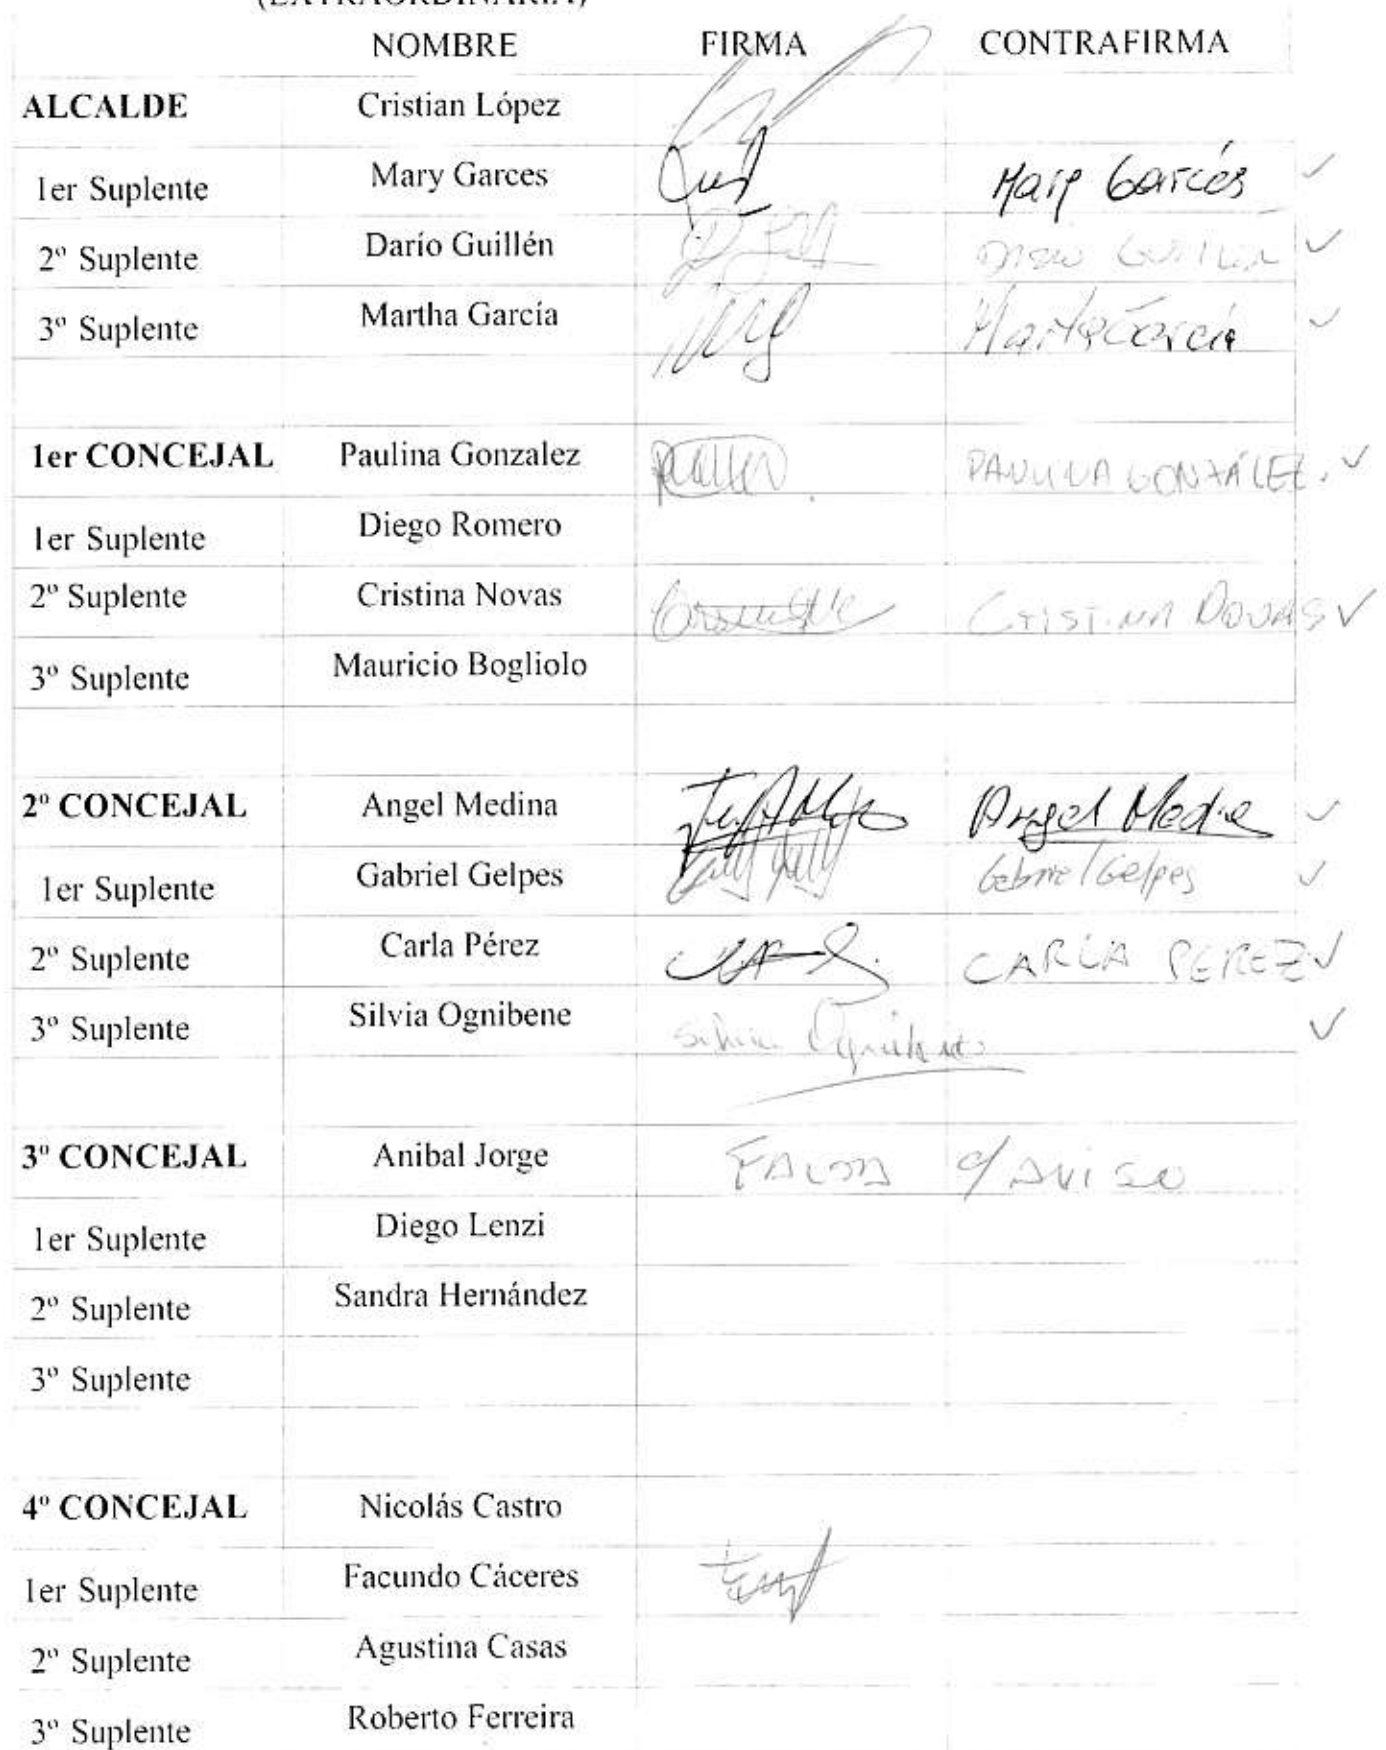 (EXTRAORDINARIA)
NOMBRE FIRMA CONTRAFIRMA
ALCALDE Cristian López
1er Suplente Mary Garces Mary Garcés ✓
2º Suplente Darío Guillén Darío Guillén ✓
3º Suplente Martha García Marta García ✓
1er CONCEJAL Paulina Gonzalez PAULINA GONZÁLEZ. ✓
1er Suplente Diego Romero
2º Suplente Cristina Novas CRISTINA NOVAS ✓
3º Suplente Mauricio Bogliolo
2º CONCEJAL Angel Medina Angel Medina ✓
1er Suplente Gabriel Gelpes Gabriel Gelpes ✓
2º Suplente Carla Pérez CARLA PEREZ ✓
3º Suplente Silvia Ognibene Silvia Ognibene ✓
3º CONCEJAL Anibal Jorge FALTA c/ AVISO
1er Suplente Diego Lenzi
2º Suplente Sandra Hernández
3º Suplente
4º CONCEJAL Nicolás Castro
1er Suplente Facundo Cáceres
2º Suplente Agustina Casas
3º Suplente Roberto Ferreira